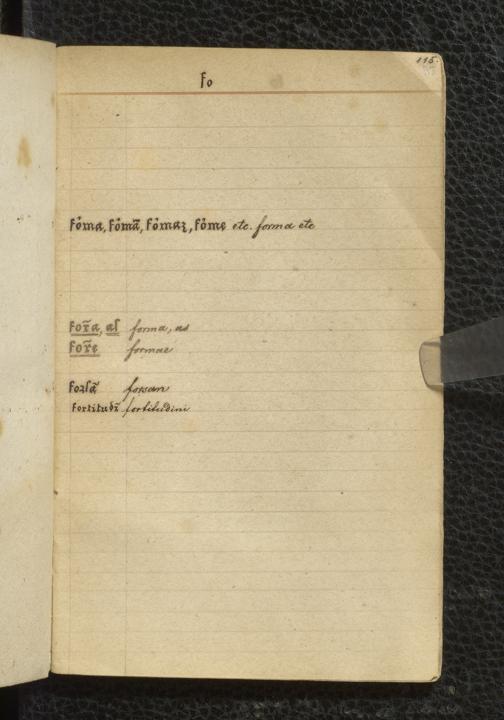 115.
fo
fōma, fōmā, fōmaꝝ, fōme etc. forma etc
for̄a, aſ forma, as
for̄e formae
forſā forsan
fortitudī fortitudini